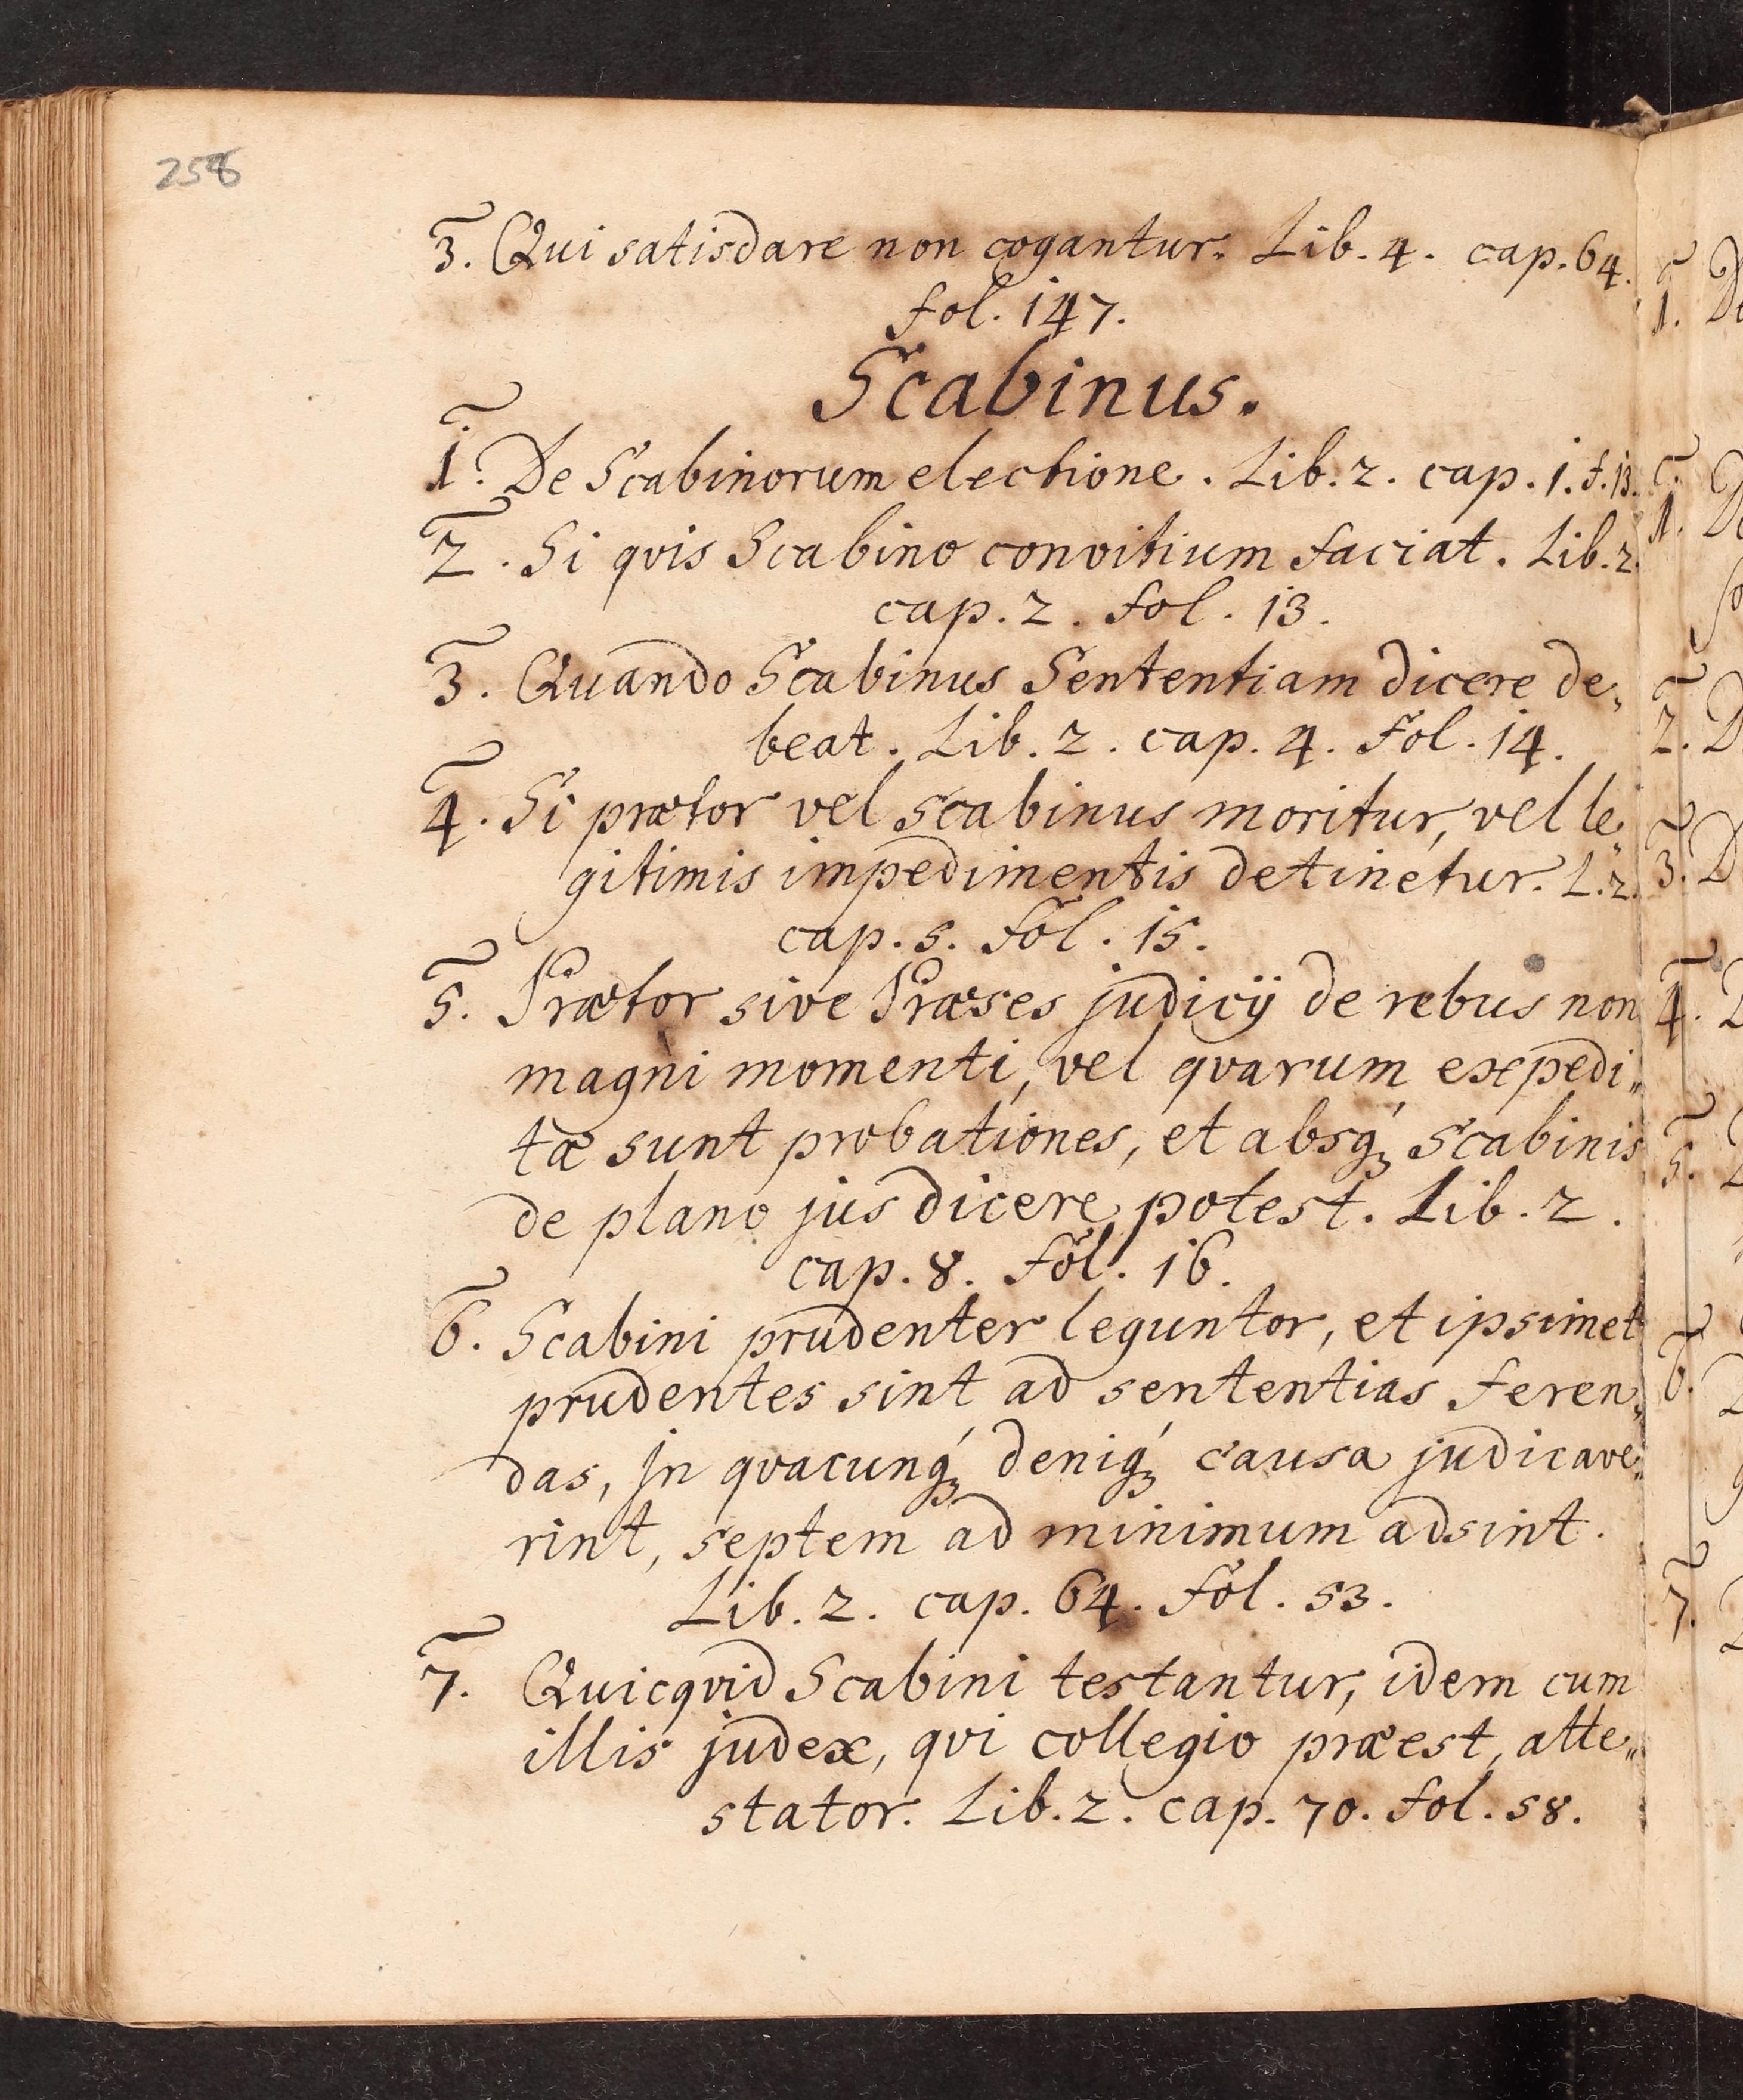 258
3. Qui satisdare non cogantur. Lib. 4. cap. 64.
fol. 147.
Scabinus.
1. De Scabinorum electione. Lib. 2. cap. 1. f. 13.
2. Si qvis Scabino convitium faciat. Lib. 2.
cap. 2. fol. 13.
3. Quando Scabinus Sententiam dicere de„
beat. Lib. 2. cap. 4. Fol. 14.
4. Si prætor vel scabinus moritur, vel le„
gitimis impedimentis detinetur. L. 2.
cap. 5. Fol. 15.
5. Prætor sive Præses judicij de rebus non
magni momenti, vel qvarum expedi„
tæ sunt probationes, et absq́ꝫ Scabinis
de plano jus dicere potest. Lib. 2.
cap. 8. Fol. 16.
6. Scabini prudenter leguntor, et ipsimet
prudentes sint ad sententias feren„
das, Jn qvacunq́ꝫ deniq́ꝫ causa judicave„
rint, septem ad minimum adsint.
Lib. 2. cap. 64. Fol. 53.
7. Quicqvid Scabini testantur, idem cum
illis judex, qvi collegio præest, atte„
stator. Lib. 2. cap. 70. fol. 58.